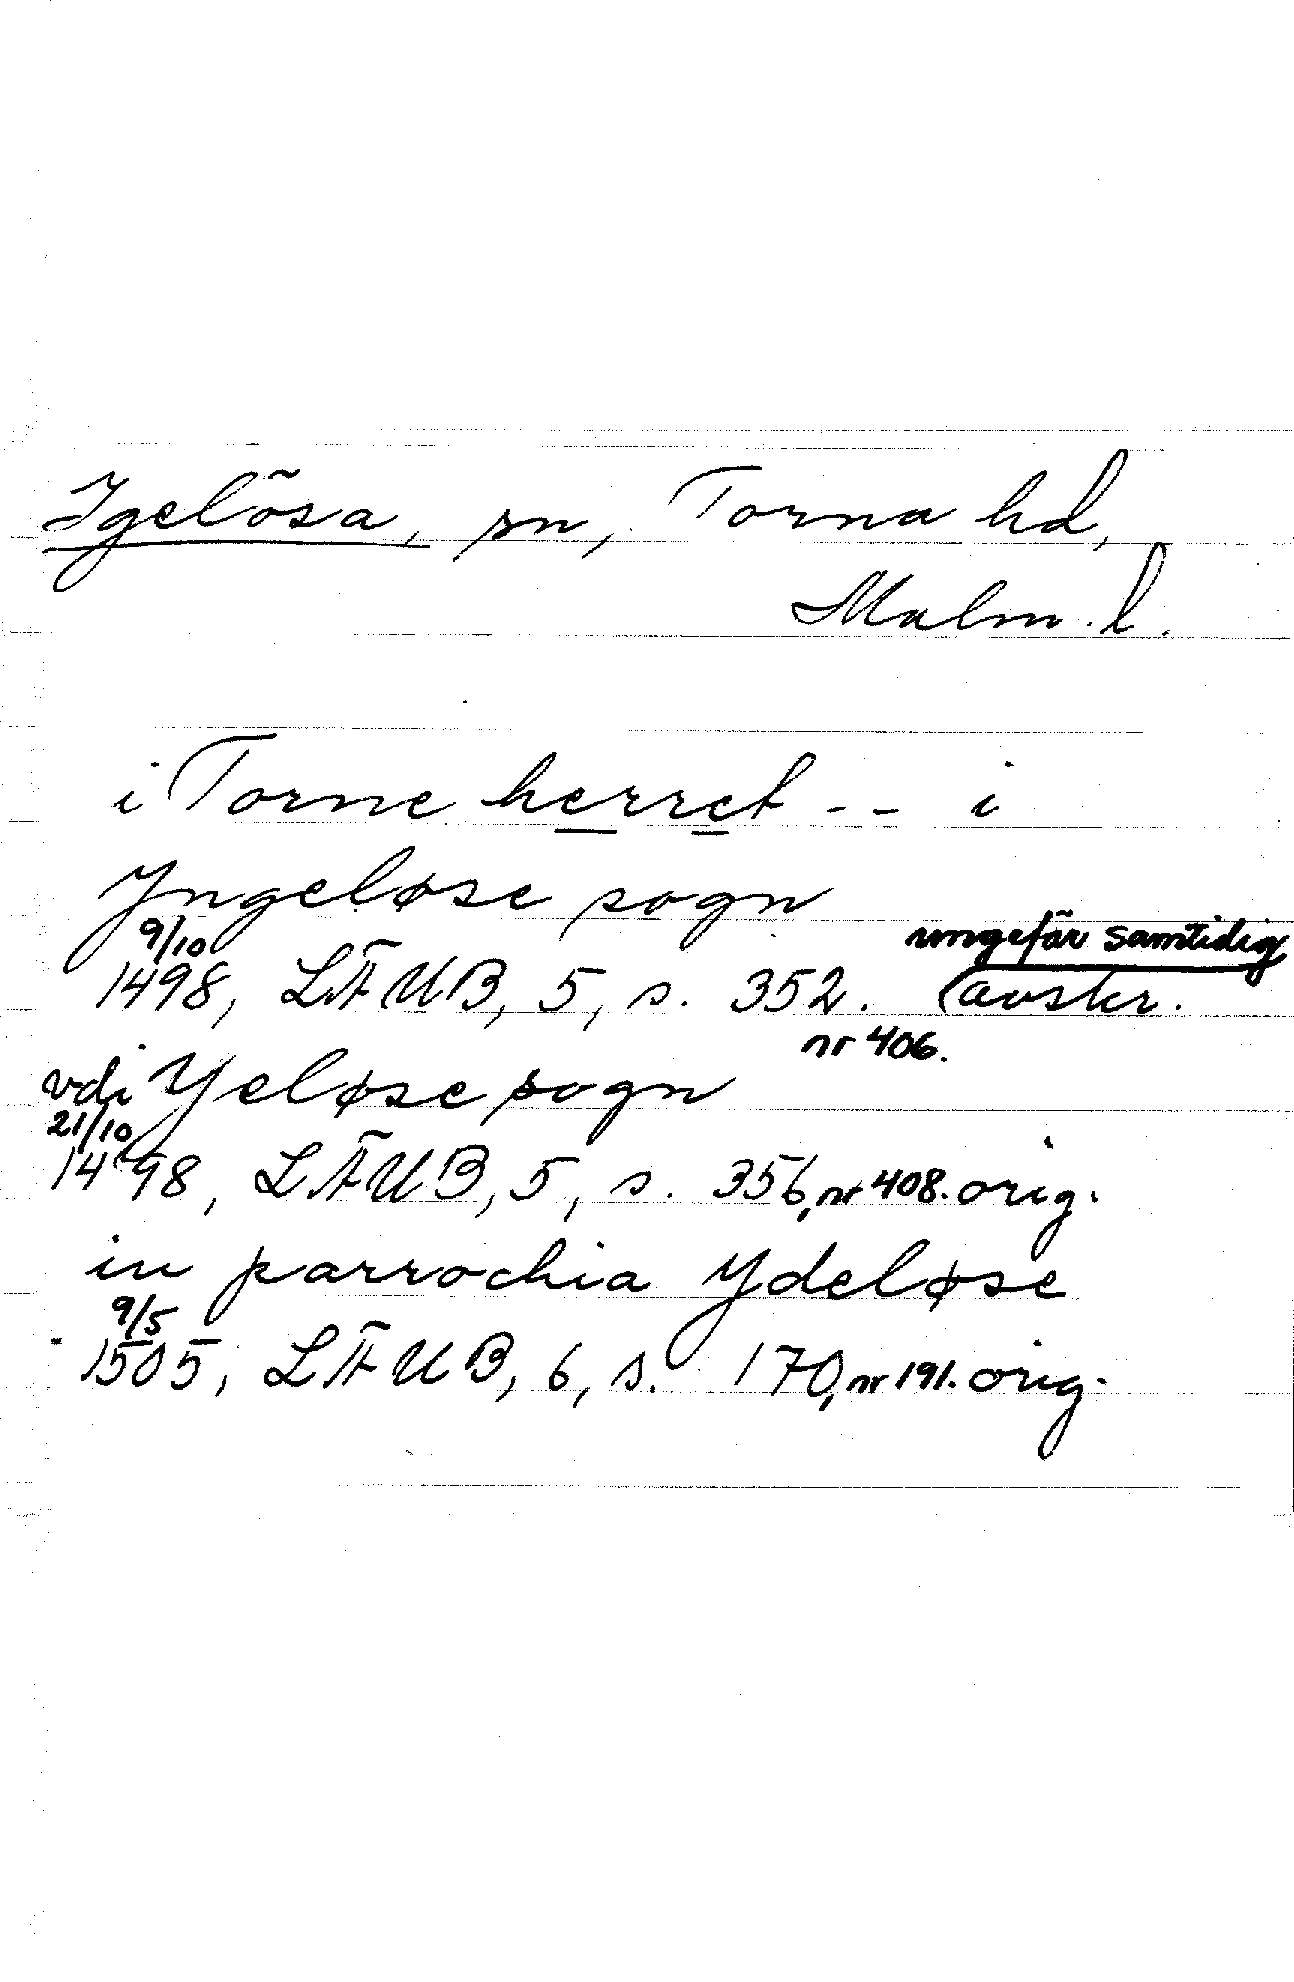 Igelösa, sn, Torna hd,
Malm. l.
i Torne herret -- i
Yngeløse sogn
ungefär samtidig
9/10
1498, LÄUB, 5, s. 352. (avskr.
nr 406.
vdi Yeløse sogn
21/10
1498, LÄUB, 5, s. 356, nr 408. orig.
in parrochia Ydeløse
9/5
1505, LÄUB, 6, s. 170, nr 191. orig.